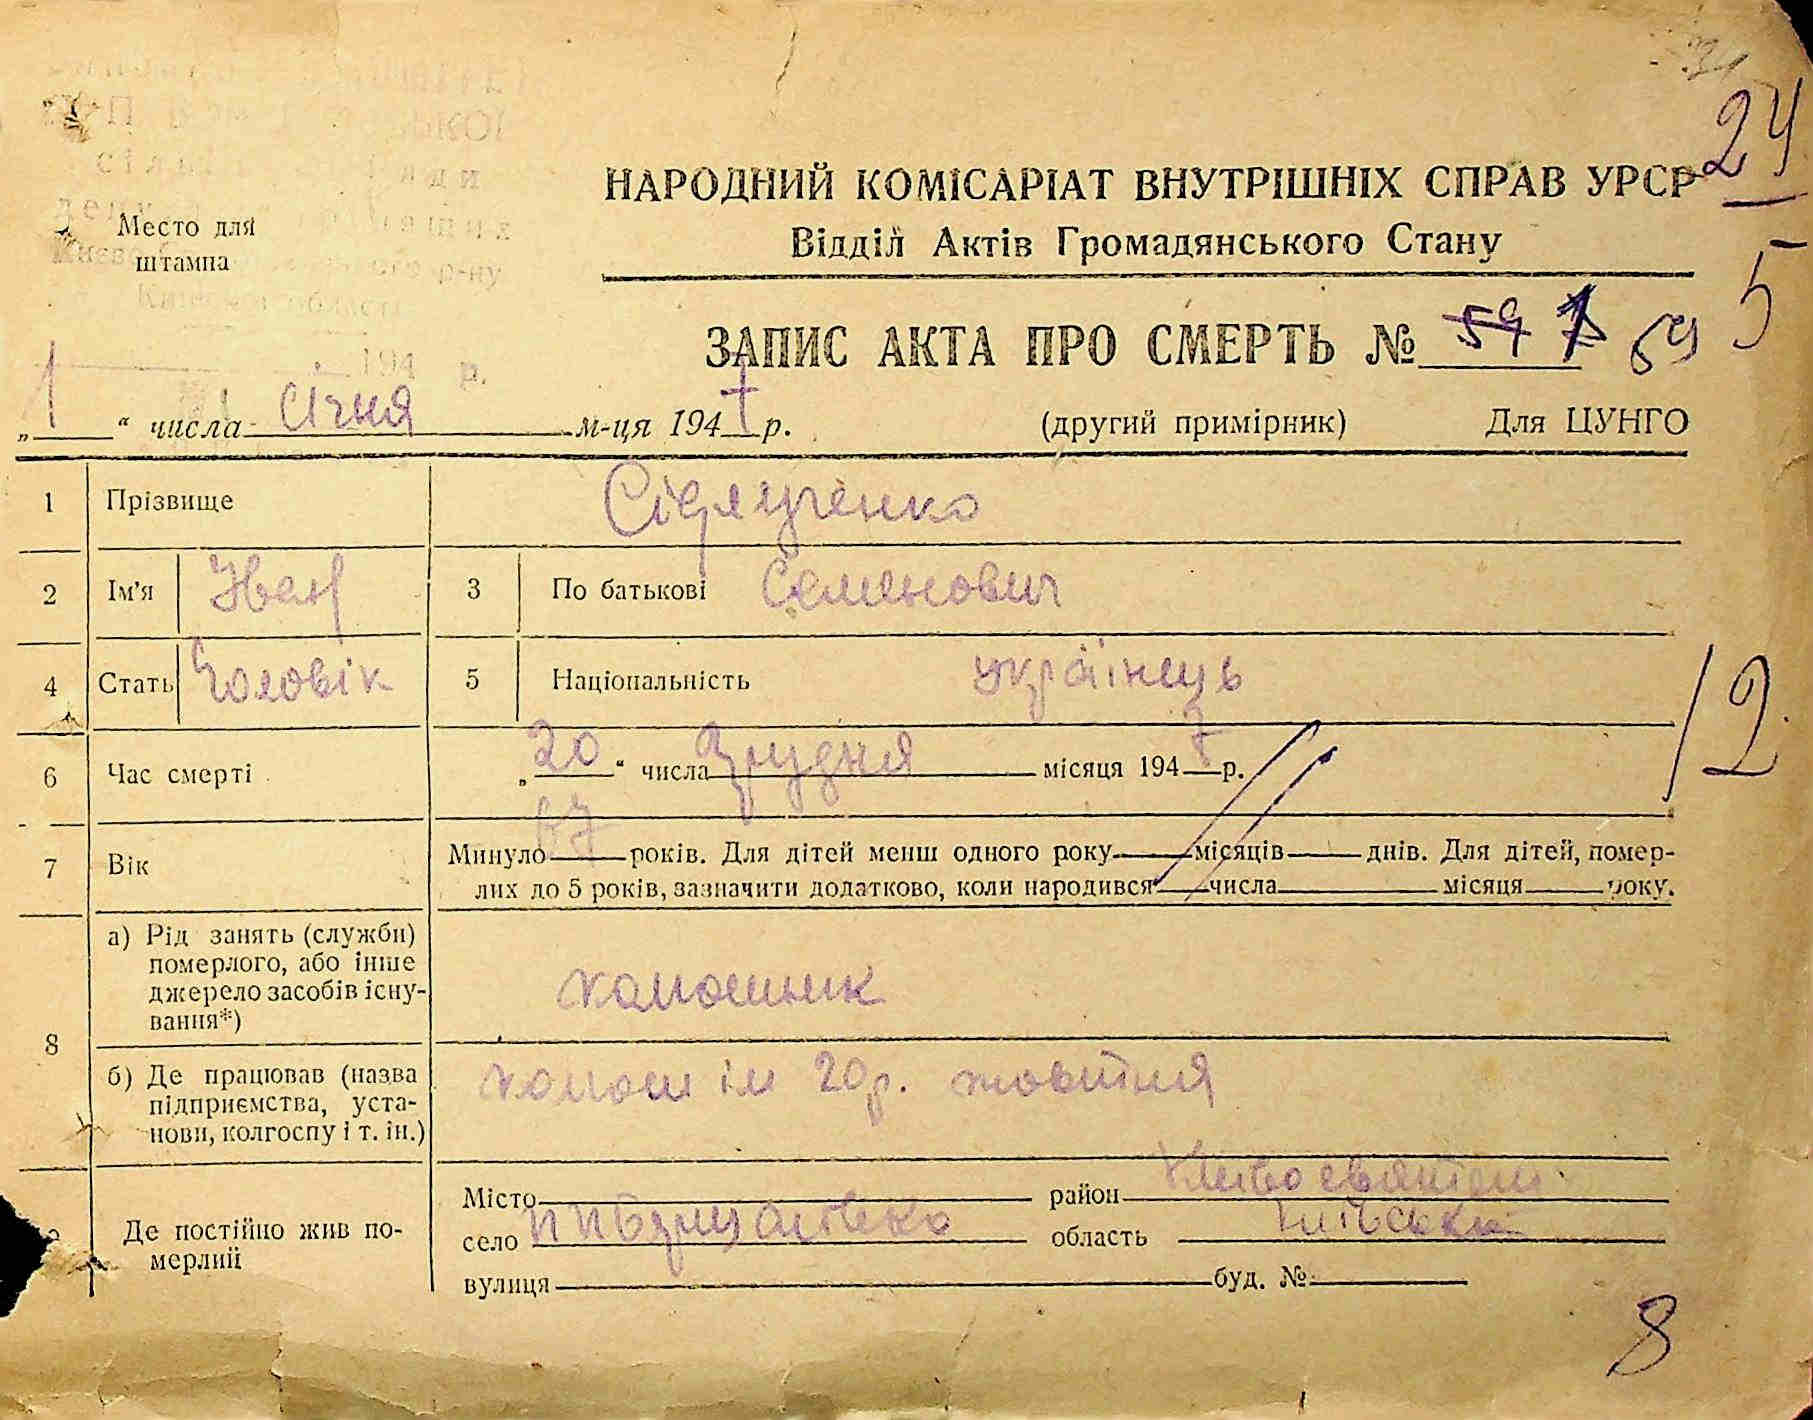 31
24
НАРОДНИЙ КОМІСАРІАТ ВНУТРІШНІХ СПРАВ УРСР
Відділ Актів Громадянського Стану
5
Место для
штампа
ЗАПИС АКТА ПРО СМЕРТЬ № 59 1 59
194 р.
„1“ числа січня м-ця 1947 р. (другий примірник) Для ЦУНГО
1 Прізвище
2 Ім'я Іван 3 По батькові Семенович
4 Стать Чоловік 5 Національність українець
12
6 Час смерті „20“ числа грудня місяця 1947 р.
7 Вік Минуло 67 років. Для дітей менш одного року місяців днів. Для дітей, помер-
лих до 5 років, зазначити додатково, коли народився числа місяця року.
8 а) Рід занять (служби)
померлого, або інше
джерело засобів існу-
вання*)
колгоспник
б) Де працював (назва
підприємства, уста-
нови, колгоспу і т. ін.)
колгосп ім 20р. жовтня
Де постійно жив по-
мерлий
Місто район
село область Київська
вулиця буд. №
8